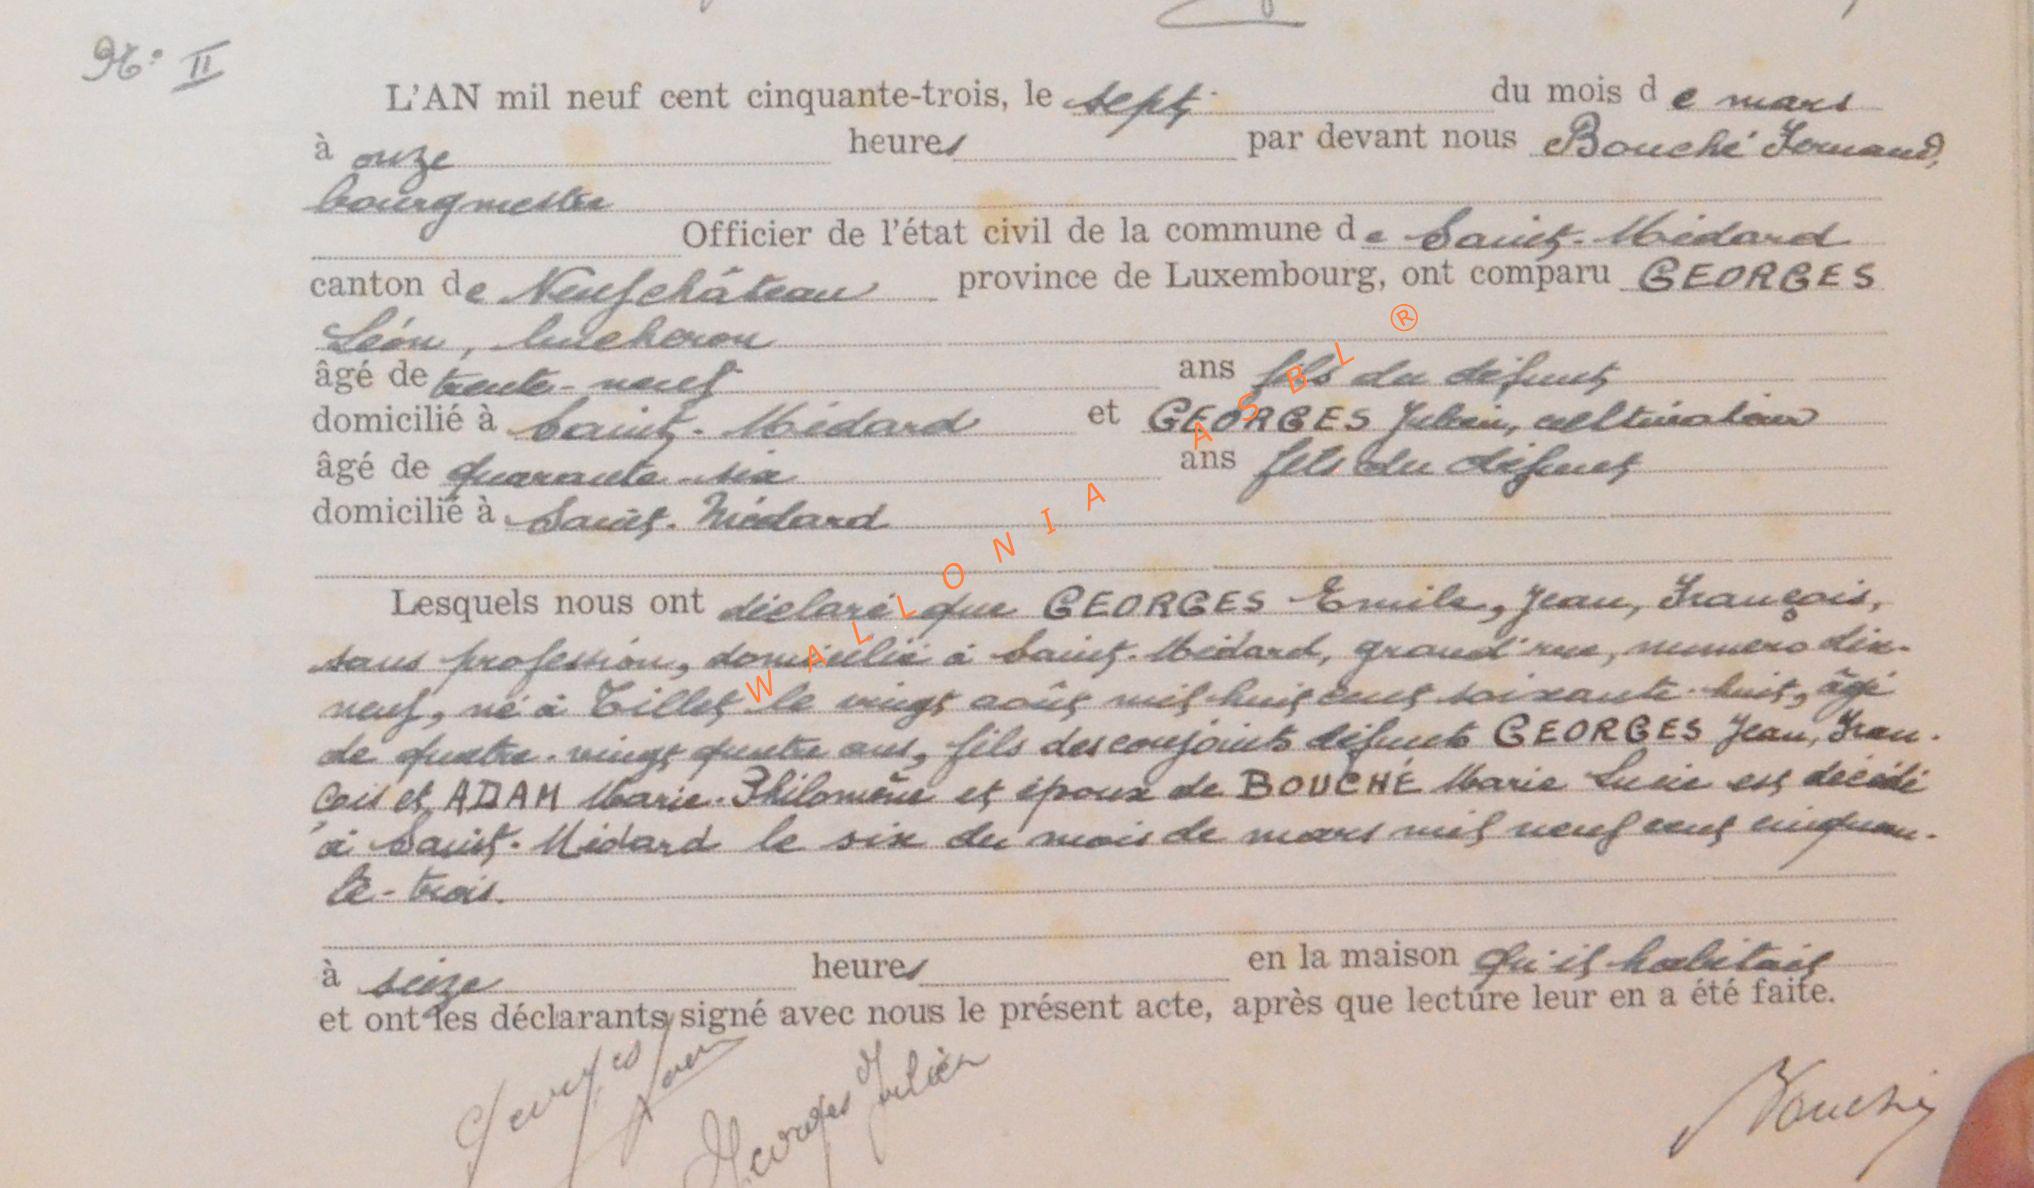 N° II
L'AN mil neuf cent cinquante-trois, le sept du mois de mars
à onze heures par devant nous Bouché Fernand,
bourgmestre
Officier de l'état civil de la commune de Saint-Médard
canton de Neufchâteau province de Luxembourg, ont comparu GEORGES
Léon, bucheron
âgé de trente-neuf ans fils du défunt
domicilié à Saint-Médard et GEORGES Julien, cultivateur
âgé de quarante-six ans fils du défunt
domicilié à Saint-Médard
Lesquels nous ont déclaré que GEORGES Emile, Jean, François,
sans profession, domicilié à Saint-Médard, grand'rue, numero dix-
neuf, né à Tillet le vingt août mil huit cent soixante-huit, âgé
de quatre-vingt quatre ans, fils des conjoints défunts GEORGES Jean, Fran-
çois et ADAM Marie-Philomène et époux de BOUCHÉ Marie Lucie est décédé
à Saint-Médard le six du mois de mars mil neuf cent cinquan-
te-trois.
à seize heures en la maison qu'il habitait
et ont les déclarants signé avec nous le présent acte, après que lecture leur en a été faite.
Georges Léon
Georges Julien
Bouché
WALLONIA ASBL ®